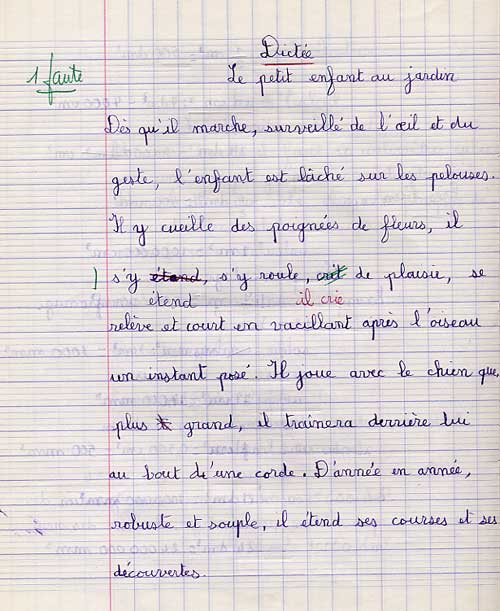 Dictée
1 faute
Le petit enfant au jardin
Dès qu'il marche, surveillé de l'œil et du
geste, l'enfant est lâché sur les pelouses.
Il y cueille des poignées de fleurs, il
s'y étend, s'y roule, crit de plaisie, se
étend il crie
relève et court en vacillant après l'oiseau
un instant posé. Il joue avec le chien que,
plus grand, il trainera derrière lui
au bout de'une corde. D'année en année,
robuste et souple, il étend ses courses et ses
découvertes.